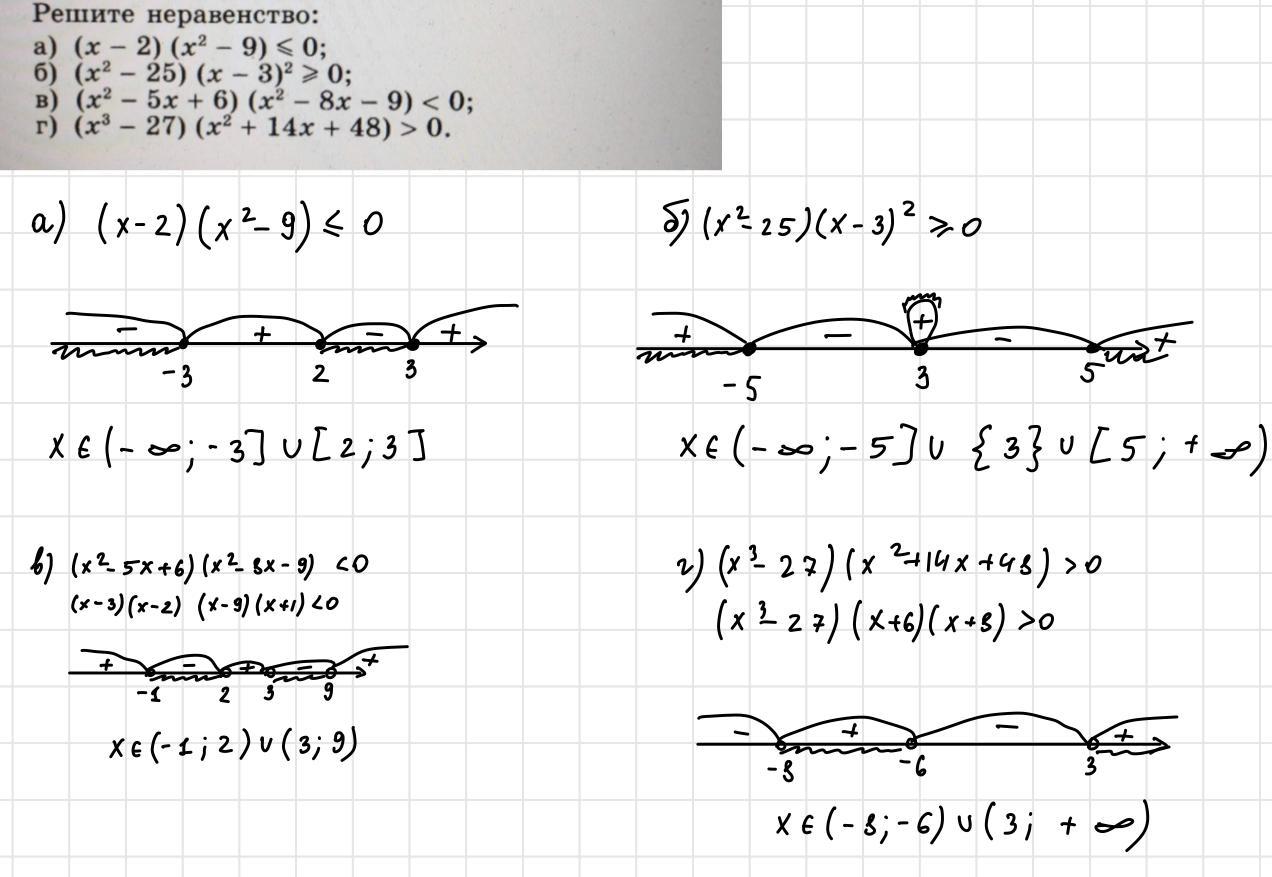 Решите неравенство:
а) (x − 2) (x² − 9) ⩽ 0;
б) (x² − 25) (x − 3)² ⩾ 0;
в) (x² − 5x + 6) (x² − 8x − 9) < 0;
г) (x³ − 27) (x² + 14x + 48) > 0.
а) (x-2)(x²-9) ≤ 0
- + - +
-3 2 3
x ∈ (-∞; -3] ∪ [2; 3]
б) (x²-25)(x-3)² ⩾ 0
+ - + - +
-5 3 5
x ∈ (-∞; -5] ∪ {3} ∪ [5; +∞)
в) (x²-5x+6)(x²-8x-9) <0
(x-3)(x-2) (x-9)(x+1)<0
+ - + - +
-1 2 3 9
x ∈ (-1; 2) ∪ (3; 9)
г) (x³-27)(x²+14x+48) >0
(x³-27)(x+6)(x+8) >0
- + - +
-8 -6 3
x ∈ (-8; -6) ∪ (3; +∞)